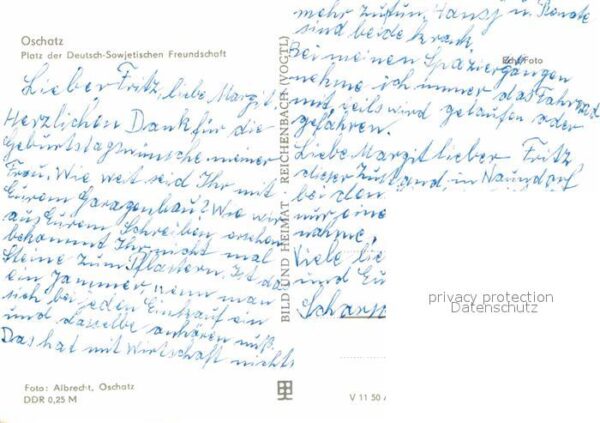 Oschatz
Platz der Deutsch-Sowjetischen Freundschaft
Lieber Fritz, liebe Margit.
Herzlichen Dank für die
Geburtstagswünsche meiner
Frau. Wie weit seid Ihr mit
Eurem Garagenbau? Wie wir
aus Eurem Schreiben ersehen
bekommt Ihr nicht mal
Steine zum Pflastern. Ist das
ein Jammer, wenn man
sich bei jeden Einkauf ein
und dasselbe anhören muß.
Das hat mit Wirtschaft nichts
Foto: Albrecht, Oschatz
DDR 0,25 M
BILD UND HEIMAT · REICHENBACH (VOGTL)
mehr zu tun. Hansj u. Renate
sind beide krank.
Echt Foto
Bei meinen Spaziergängen
nehme ich immer das Fahrrad
mit, teils wird gelaufen oder
gefahren.
Liebe Margit lieber Fritz
dieser Zustand, in Naundorf
bei den
nur eine
nahme.
Viele lie
und Eu
privacy protection
Datenschutz
V 11 50